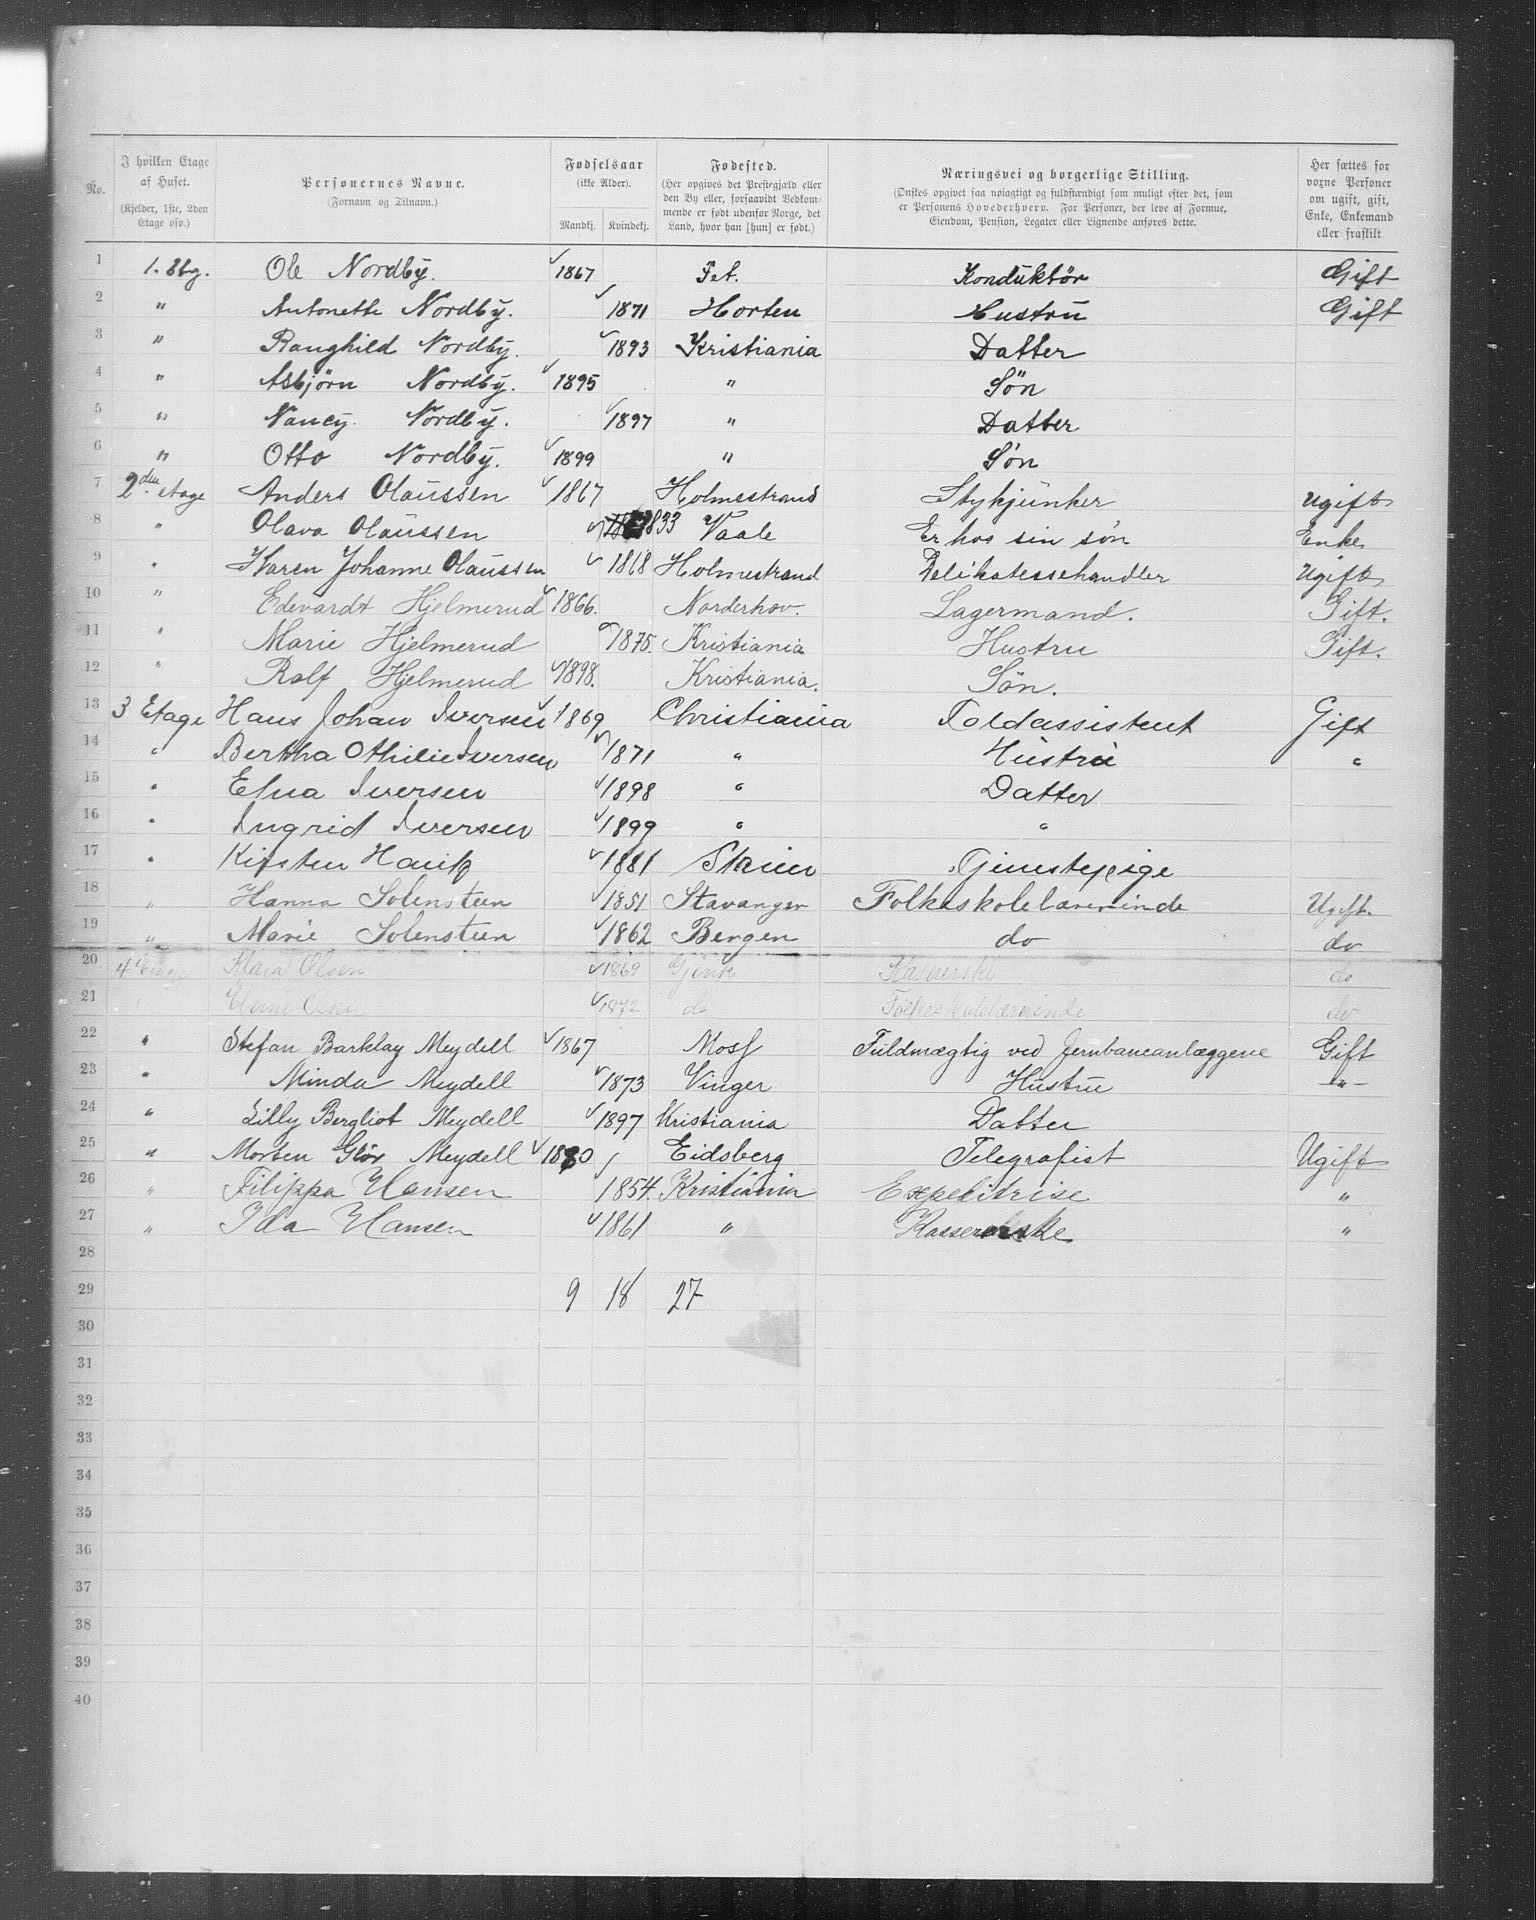 No.
I hvilken Etage af Huset. (Kjelder, 1ste, 2den Etage osv.)
Personernes Navne. (Fornavn og Tilnavn.)
Fødselsaar (ikke Alder). Mandkj. Kvindekj.
Fødested. (Her opgives det Prestegjæld eller den By eller, forsaavidt Vedkommende er født udenfor Norge, det Land, hvor han [hun] er født.)
Næringsvei og borgerlige Stilling. (Ønskes opgivet saa nøiagtigt og fuldstændigt som muligt efter det, som er Personens Hovederhverv. For Personer, der leve af Formue, Eiendom, Pension, Legater eller Lignende anføres dette.
Her sættes for voxne Personer om ugift, gift, Enke, Enkemand eller fraskilt
1 1. Etg. Ole Nordby. 1867 Fet. Konduktør Gift
2 " Antonette Nordby. 1871 Horten Hustru Gift
3 " Ranghild Nordby. 1893 Kristiania Datter
4 " Asbjørn Nordby. 1895 " Søn
5 " Nancy. Nordby. 1897 " Datter
6 " Otto Nordby. 1899 " Søn
7 2den etage Anders Olaussen 1867 Holmestrand Stykjunker Ugift
8 " Olava Olaussen 1833 Vaale Er hos sin søn Enke
9 " Karen Johanne Olaussen 1868 Holmestrand Delikatessehandler Ugift
10 " Edevardt Hjelmerud 1866. Norderhov. Lagermand. Gift.
11 " Marie Hjelmerud 1875. Kristiania Hustru Gift.
12 " Rolf Hjelmerud 1898. Kristiania. Søn.
13 3 Etage Hans Johan Iversen 1869 Christiania Toldassistent Gift
14 " Bertha Othilie Iversen 1871 " Hustru "
15 " Elna Iversen 1898 " Datter
16 " Ingrid Iversen 1899 " "
17 " Kirsten 1881 Skien Tjenestepige
18 " Hanna Solensteen 1851 Stavanger Folkeskolelærerinde Ugift.
19 " Marie Solensteen 1862 Bergen do do
20 4 Etage Klara Olsen 1869 Gjøvik Kasserske do
21 " Olsen 1872 do Folkeskolelærerinde do
22 " Stefan Barklay Meydell 1867 Moss Fuldmægtig ved Jernbaneanlæggene Gift
23 " Minda Meydell 1873 Vinger Hustru — " —
24 " Lilly Bergliot Meydell 1897 Kristiania Datter
25 " Morten Glør Meydell 1880 Eidsberg Telegrafist Ugift
26 " Filippa Hansen 1854. Kristiania Expeditrise "
27 " Ida Hansen 1861 " Kasserske "
28
29 9 18 27
30
31
32
33
34
35
36
37
38
39
40